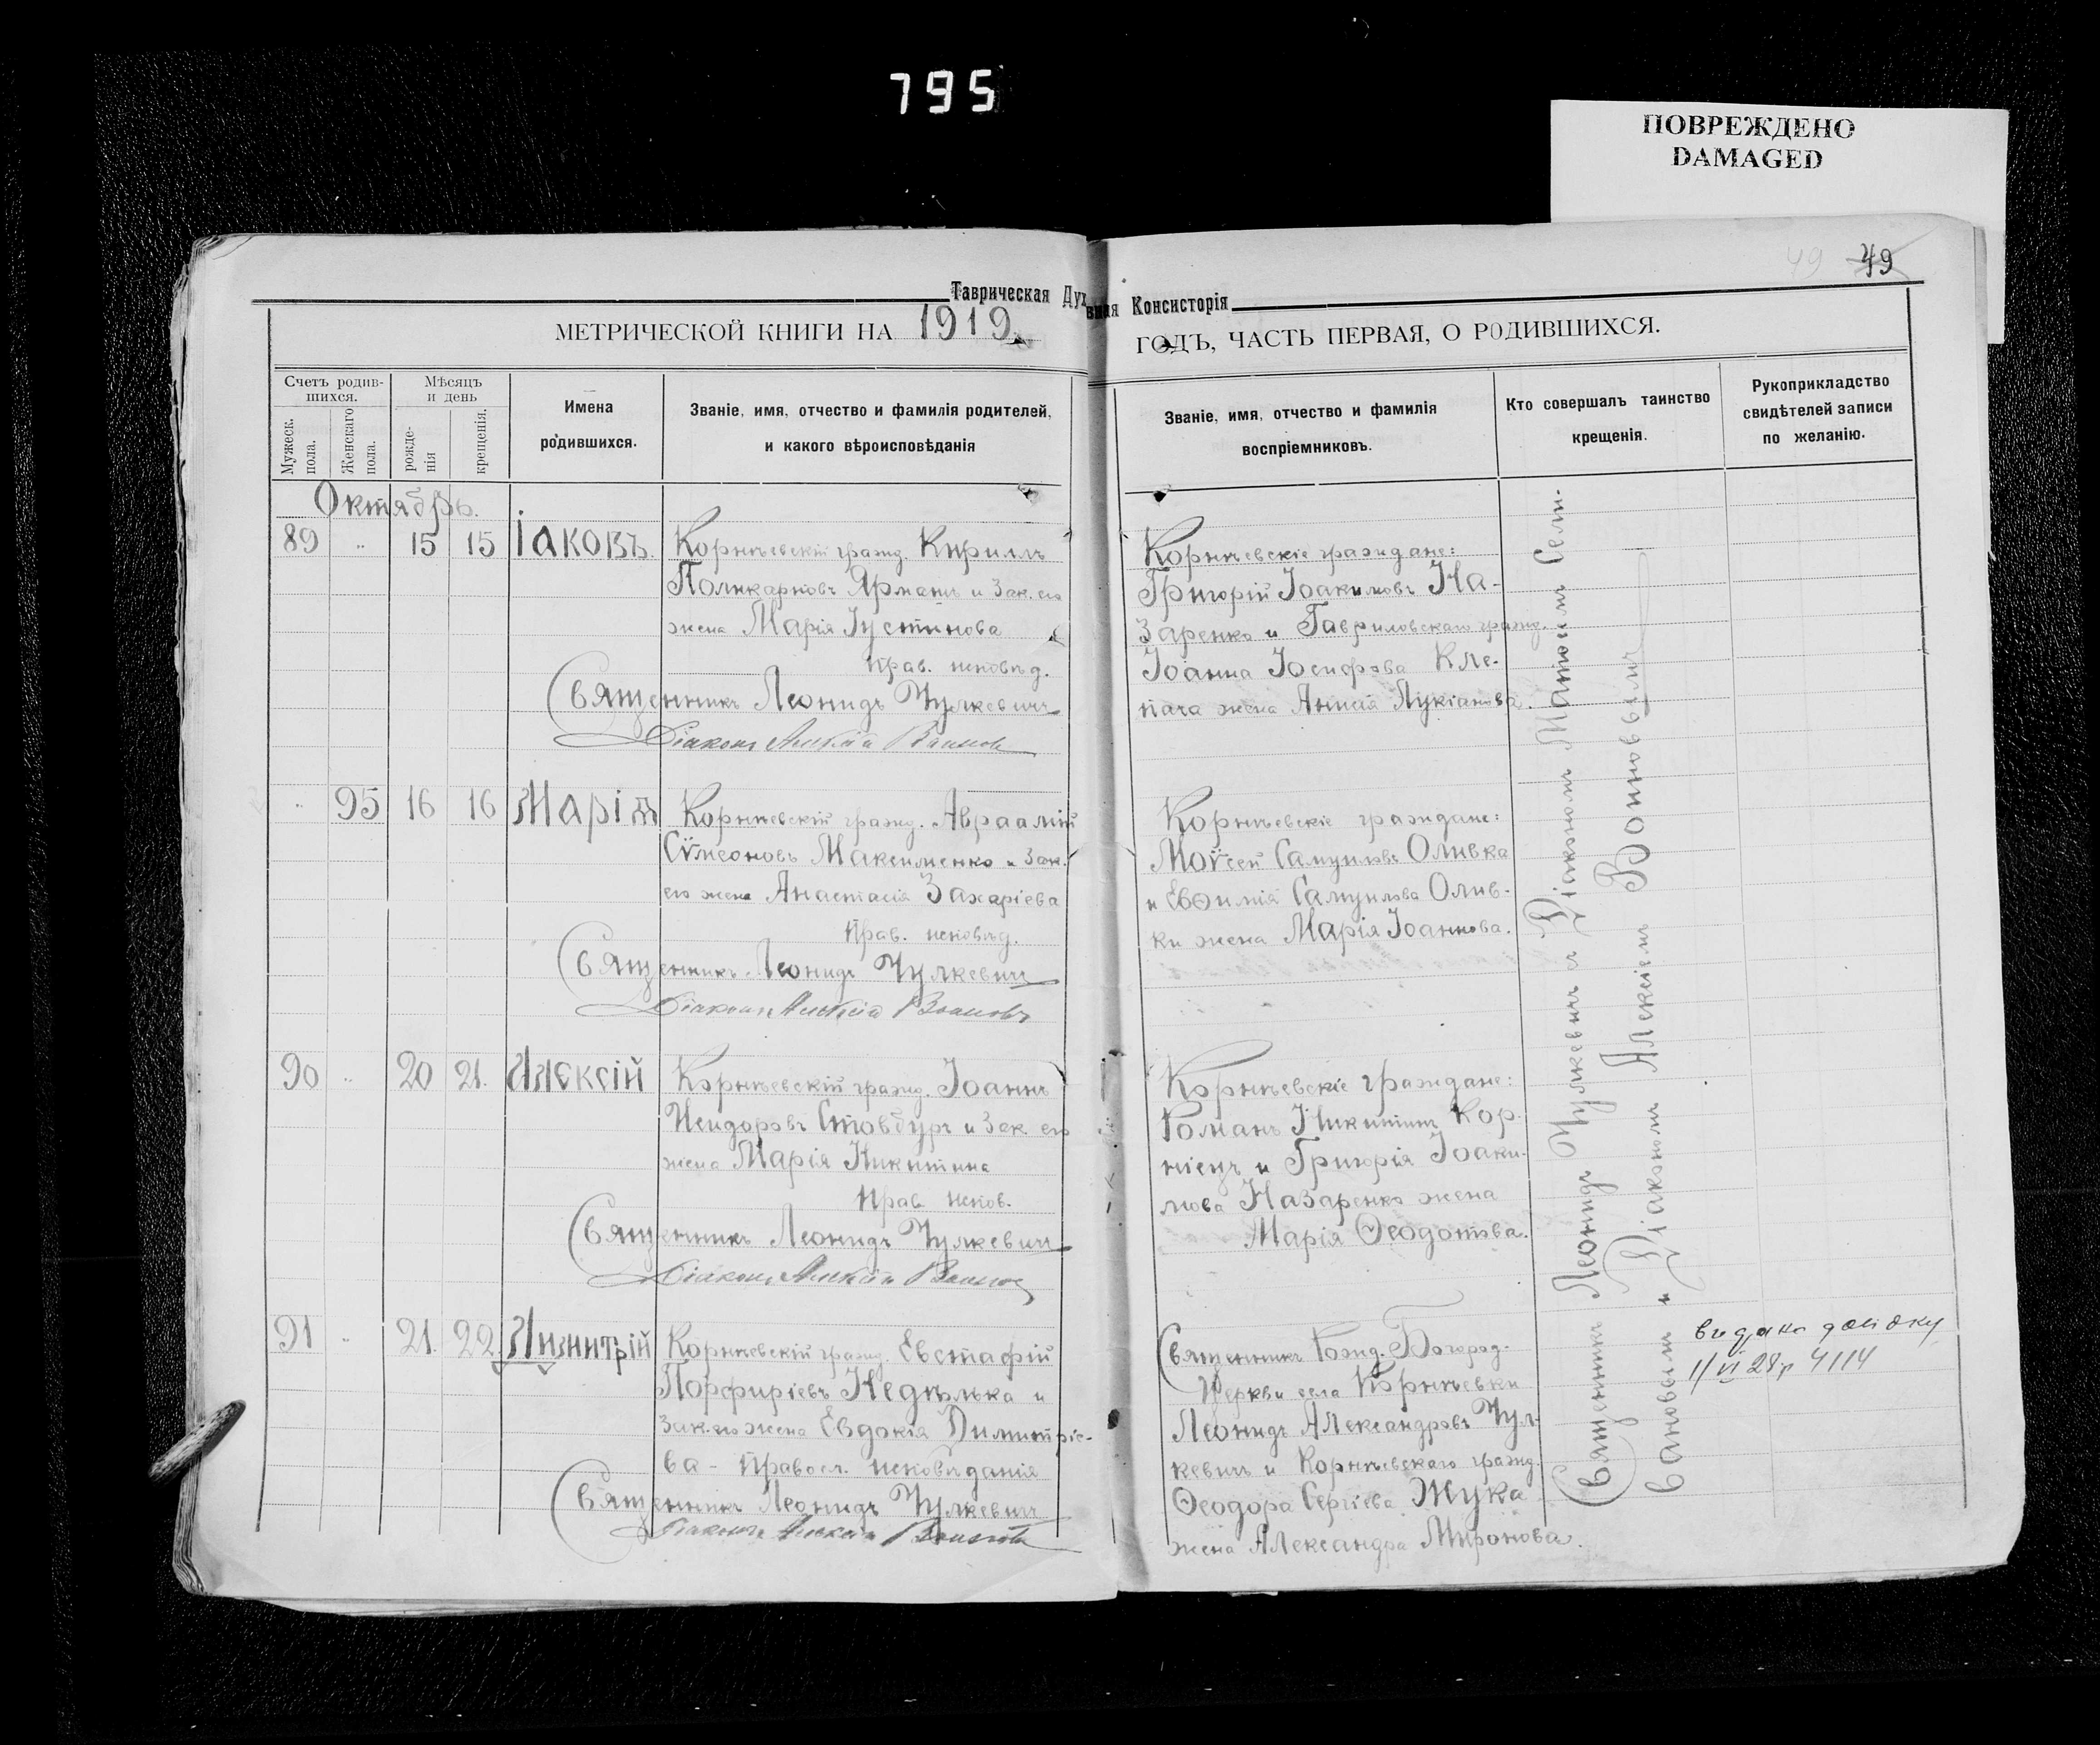 795
ПОВРЕЖДЕНО
DAMAGED
49 49
Таврическая Дух вная Консисторія
МЕТРИЧЕСКОЙ КНИГИ НА 1919
ГОДЪ, ЧАСТЬ ПЕРВАЯ, О РОДИВШИХСЯ.
Счетъ родив-
шихся.
Мужеск.
пола.
Женскаго
пола.
Мѣсяцъ
и день
рожде-
нія
крещенія.
Имена
родившихся.
Званіе, имя, отчество и фамилія родителей,
и какого вѣроисповѣданія
Званіе, имя, отчество и фамилія
воспріемниковъ.
Кто совершалъ таинство
крещенія.
Рукоприкладство
свидѣтелей записи
по желанію.
Октябрь.
89 " 15 15 Іаковъ.
Корнѣевскій гражд. Кириллъ
Поликарповъ Ярмашъ и зак. его
жена Марія Іустинова
Прав. исповѣд.
Священникъ Леонидъ Чулкевичъ
Діаконъ Алексій
Корнѣевскіе граждане:
Григорій Іоакимовъ На-
заренко и Гавриловскаго гражд.
Іоанна Іосифова Кле-
пача жена Анисія Лукіанова.
" 95 16 16 Марія
Корнѣевскій гражд. Авраамій
Сѵмеоновъ Максименко и зак.
его жена Анастасія Захаріева
Прав. исповѣд.
Священникъ Леонидъ Чулкевичъ
Діаконъ Алексій
Корнѣевскіе граждане:
Моѵсей Самуиловъ Оливка
и Евѳимія Самуилова Олив-
ки жена Марія Іоаннова.
90 " 20 21. Алексій
Корнѣевскій гражд. Іоаннъ
Исидоровъ Стовбуръ и зак. его
жена Марія Никитина
Прав. испов.
Священникъ Леонидъ Чулкевичъ
Діаконъ Алексій
Корнѣевскіе граждане:
Романъ Никитинъ Кор-
ніецъ и Григорія Іоаки-
мова Назаренко жена
Марія Ѳеодотова.
91 " 21. 22. Димитрій
Корнѣевскій гражд. Евстафій
Порфиріевъ Недѣлька и
зак. его жена Евдокія Димитріе-
ва - Правосл. исповѣданія
Священникъ Леонидъ Чулкевичъ
Діаконъ Алексій
Священникъ Рожд. Богород.
Церкви села Корнѣевки
Леонидъ Александровъ Чул-
кевичъ и Корнѣевскаго гражд.
Ѳеодора Сергіева Жука
жена Александра Миронова.
Священникъ Леонидъ Чулкевичъ съ Діакономъ Сели-
вановымъ и Діакономъ Алексіемъ
видана
11/VI 28р 4114